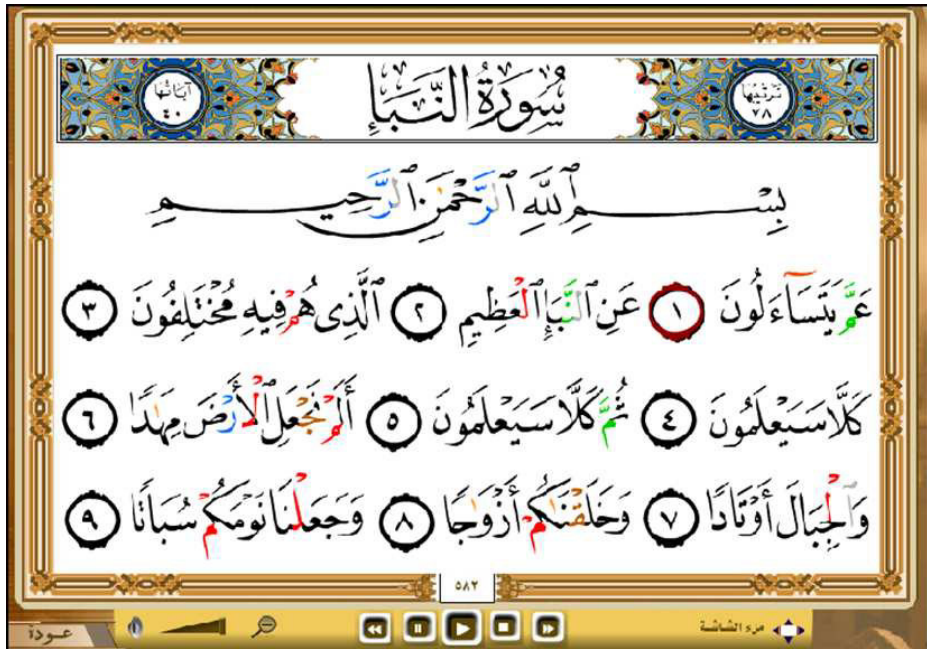 ترتيبها ٧٨
سُورَةُ النَّبَإِ
آياتها ٤٠
بِسْمِ ٱللَّهِ ٱلرَّحْمَٰنِ ٱلرَّحِيمِ
عَمَّ يَتَسَآءَلُونَ ١ عَنِ ٱلنَّبَإِ ٱلْعَظِيمِ ٢ ٱلَّذِى هُمْ فِيهِ مُخْتَلِفُونَ ٣
كَلَّا سَيَعْلَمُونَ ٤ ثُمَّ كَلَّا سَيَعْلَمُونَ ٥ أَلَمْ نَجْعَلِ ٱلْأَرْضَ مِهَٰدًا ٦
وَٱلْجِبَالَ أَوْتَادًا ٧ وَخَلَقْنَٰكُمْ أَزْوَٰجًا ٨ وَجَعَلْنَا نَوْمَكُمْ سُبَاتًا ٩
٥٨٢
مرء الشاشة
عودة